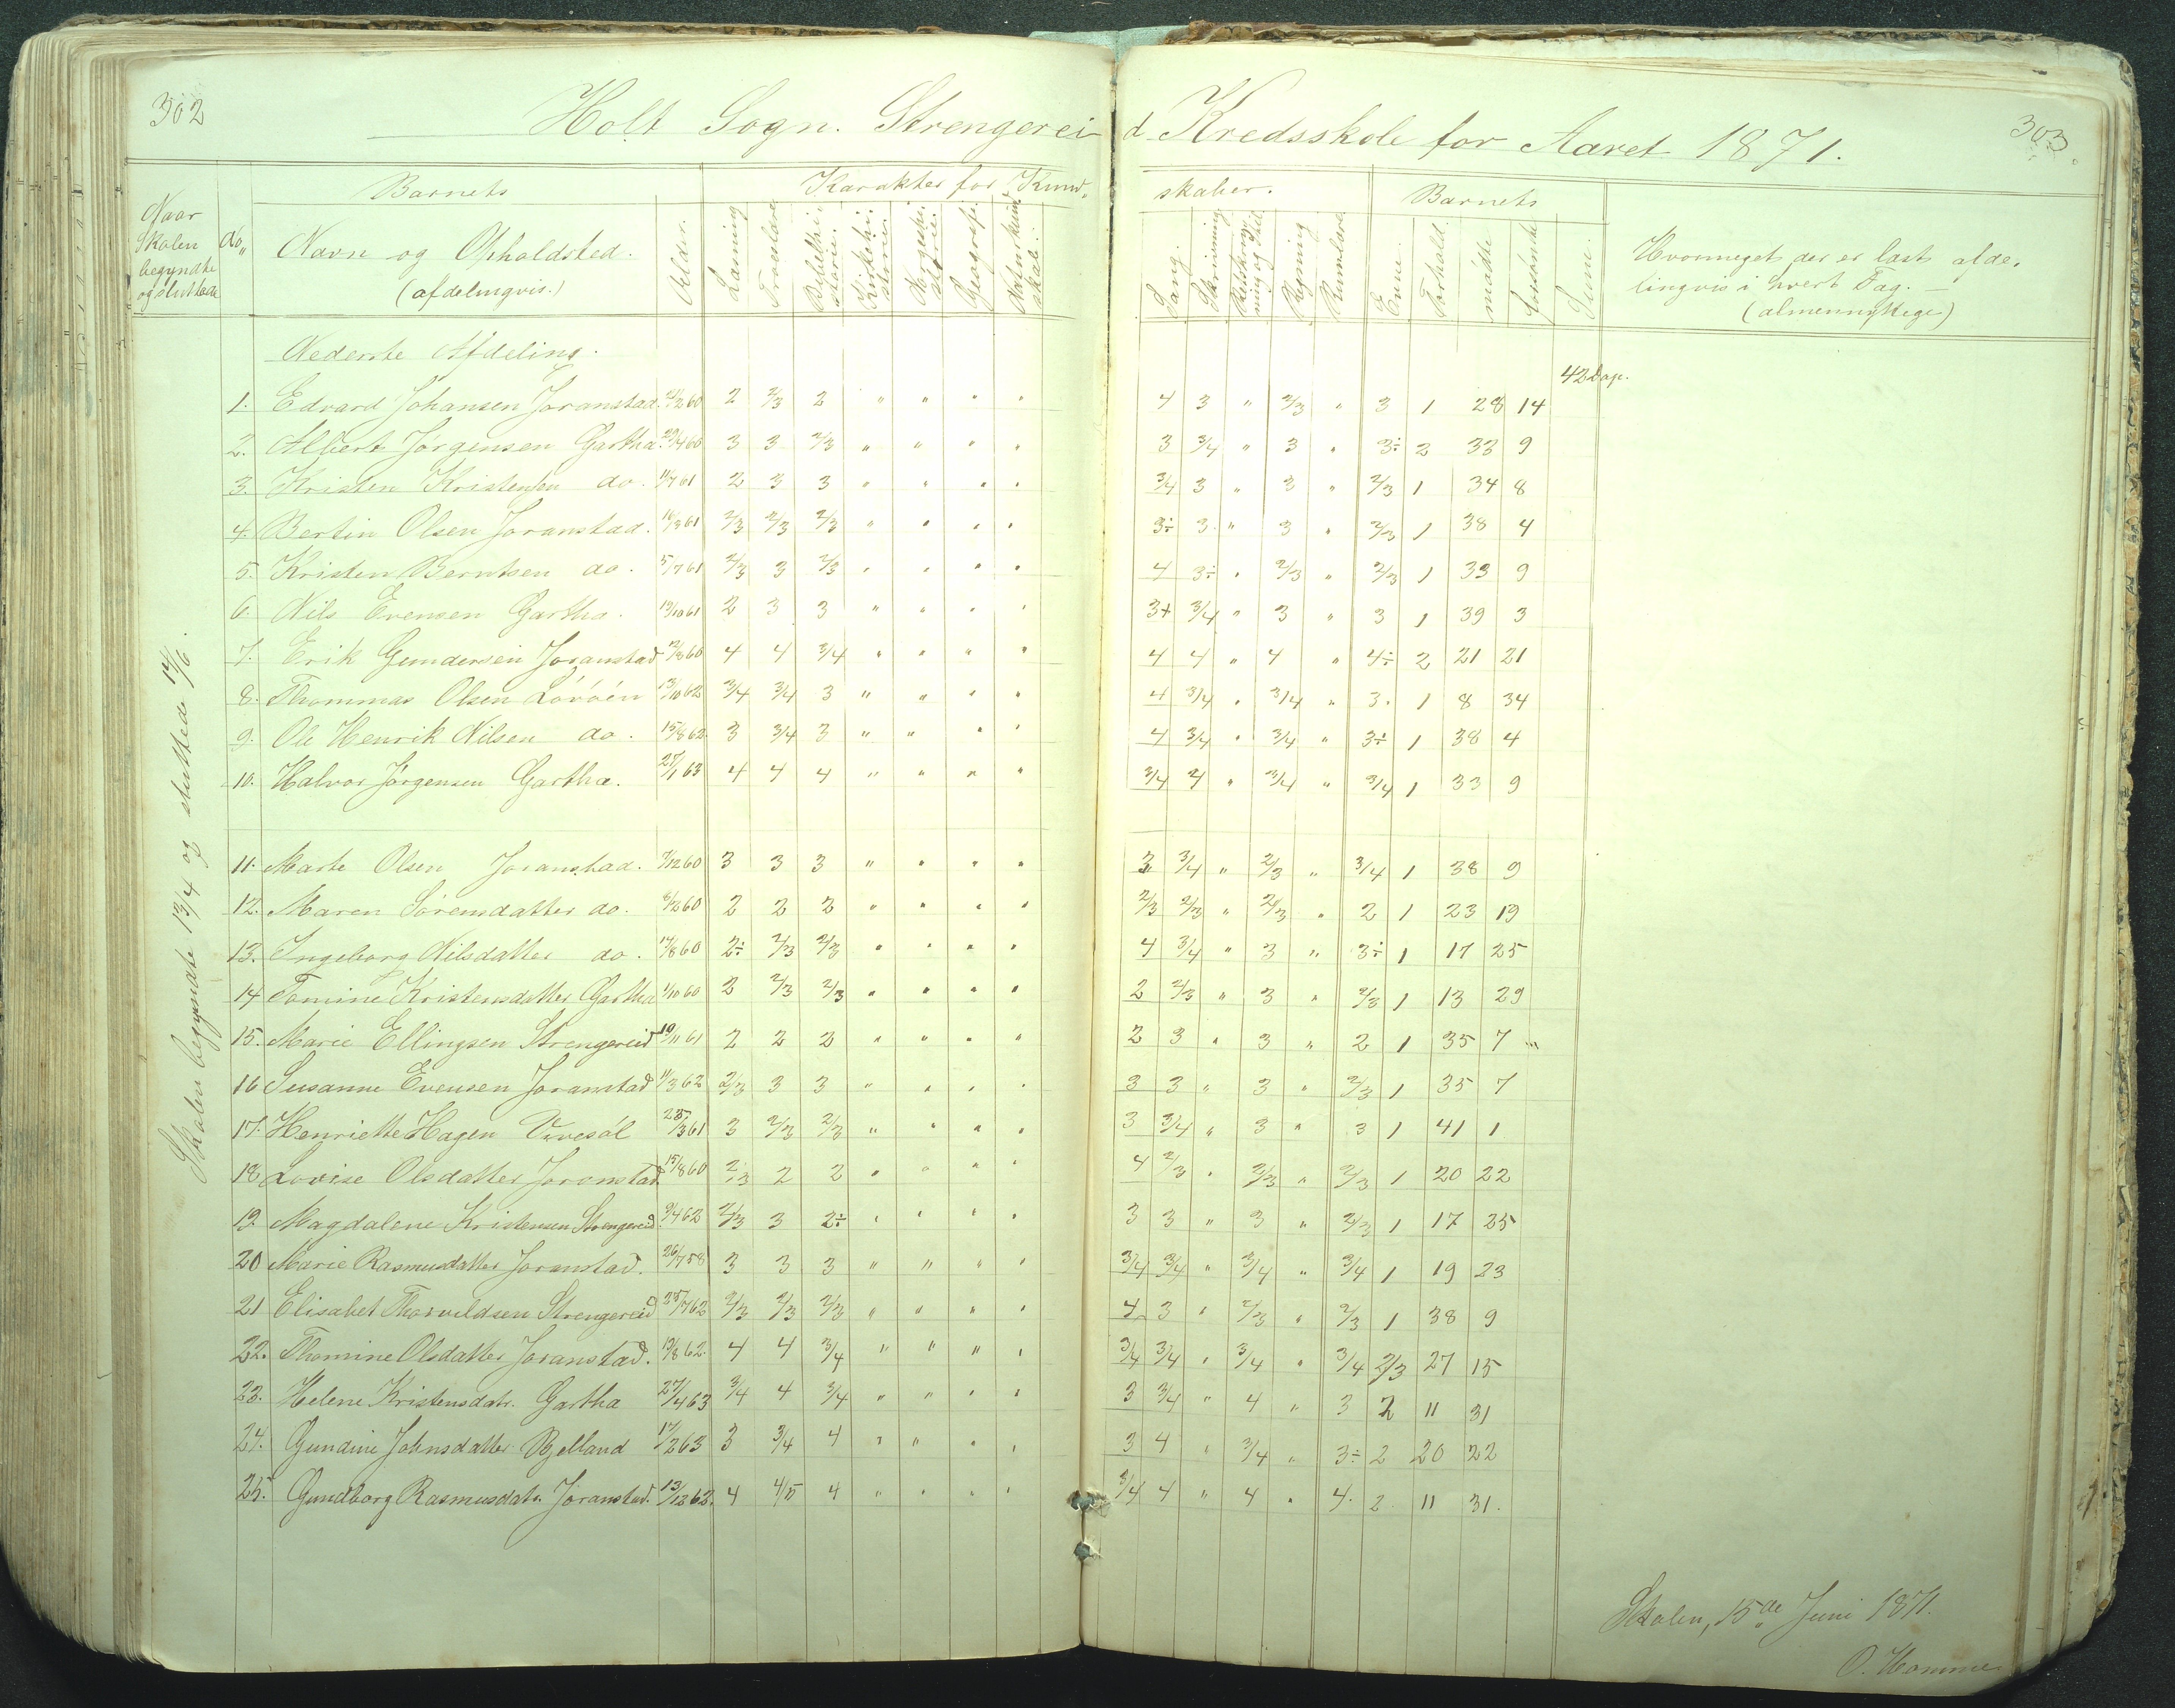 302
Holt Sogn. Strengereid Kredsskole for Aaret 1871.
303.
Naar Skolen begyndte og sluttede
No
Barnets
Navn og Opholdsted.
(afdelingvis.)
Alder.
Karakter for Kundskaber.
Læsning
Troeslære
Bibelhistorie.
Kirkehistorie.
Norgeshistorie.
Geografi.
Naturkundskab.
Sang.
Skrivning
Retskrivning og Stil
Regning
Rumlære
Barnets
Evne.
Forhold.
mødte
forsømte
Sum.
Hvormeget der er læst afdelingvis i hvert Fag. —
(almennyttige)
Skolen begyndte 13/4 og sluttede 14/6.
Nederste Afdeling.
42 Dage.
1. Edvard Johansen Joranstad. 2 2/3 2 " " " " 4 3 " 2/3 " 3 1 28 14
2. Albert Jörgensen Gartha. 29/4 60 3 3 2/3 " " " " 3 3/4 " 3 " 3÷ 2 33 9
3. Kristen Kristensen do. 11/7 61 2 3 3 " " " " 3/4 3 " 3 " 2/3 1 34 8
4. Bertin Olsen Joranstad. 2/3 2/3 2/3 " " " " 3÷ 3 " 3 " 2/3 1 38 4
5. Kristen Berntsen do. 5/7 61 2/3 3 2/3 " " " " 4 3÷ " 2/3 " 2/3 1 33 9
6. Nils Evensen Gartha. 19/10 61 2 3 3 " " " " 3+ 3/4 " 3 " 3 1 39 3
7. Erik Gundersen Joranstad 4 4 3/4 " " " " 4 4 " 4 " 4÷ 2 21 21
8. Thommas Olsen 13/10 62 3/4 3/4 3 " " " " 4 3/4 " 3/4 " 3. 1 8 34
9. Ole Henrik Nilsen do. 15/8 62. 3 3/4 3 " " " " 4 3/4 " 3/4 " 3÷ 1 38 4
10. Halvor Jörgensen Gartha. 27/1 63 4 4 4 " " " " 3/4 4 " 3/4 " 3/4 1 33 9
11. Marte Olsen Joranstad. 7/12 60 3 3 3 " " " " 3 3/4 " 2/3 " 3/4 1 38 9
12. Maren Sörensdatter do. 2 2 2 " " " " 2/3 2/3 " 2/3 " 2 1 23 19
13. Ingeborg Nilsdatter do. 14/8 60 2÷ 2/3 2/3 " " " " 4 3/4 " 3 " 3÷ 1 17 25
14 Tomine Kristensdatter Gartha 1/10 60 2 2/3 2/3 " " " " 2 2/3 " 3 " 2/3 1 13 29
15. Marie Ellingsen Strengereid 10/11 61 2 2 2 " " " " 2 3 " 3 " 2 1 35 7
16 Susanne Evensen Joranstad 11/3 62 2/3 3 3 " " " " 3 3 " 3 " 2/3 1 35 7
17. Henriette Hagen 28/3 61 3 2/3 2/3 " " " " 3 3/4 " 3 " 3 1 41 1
18 Lovise Olsdatter Joranstad 15/8 60 2/3 2 2 " " " " 4 2/3 " 2/3 " 2/3 1 20 22
19 Magdalene Kristensen Strengereid. 9/4 62 2/3 3 2÷ " " " " 3 3 " 3 " 2/3 1 17 25
20 Marie Rasmusdatter Joranstad. 26/7 58 3 3 3 " " " " 3/4 3/4 " 3/4 " 3/4 1 19 23
21 Elisabet Thorvildsen Strengereid 25/7 62 2/3 2/3 2/3 " " " " 4 3 " 2/3 " 2/3 1 38 9
22. Thomine Olsdatter Joranstad. 19/8 62. 4 4 3/4 " " " " 3/4 3/4 " 3/4 " 3/4 2/3 27 15
23. Helene Kristensdatr. Gartha 27/4 63 3/4 4 3/4 " " " " 3 3/4 " 4 " 3 2 11 31
24. Gundine Johnsdatter 17/2 63 3 3/4 4 " " " " 3 4 " 3/4 " 3÷ 2 20 22
25. Gundborg Rasmusdatr. Joranstad. 13/12 62. 4 4/5 4 " " " " 3/4 4 " 4 " 4. 2. 11 31.
Skolen, 15de Juni 1871.
O. Homme